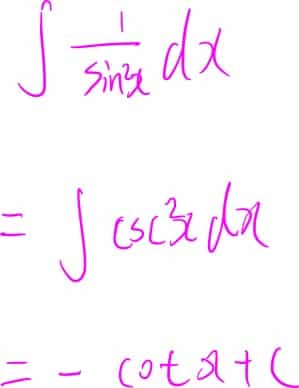 ∫ 1/sin²x dx
= ∫ csc²x dx
= - cotx + C